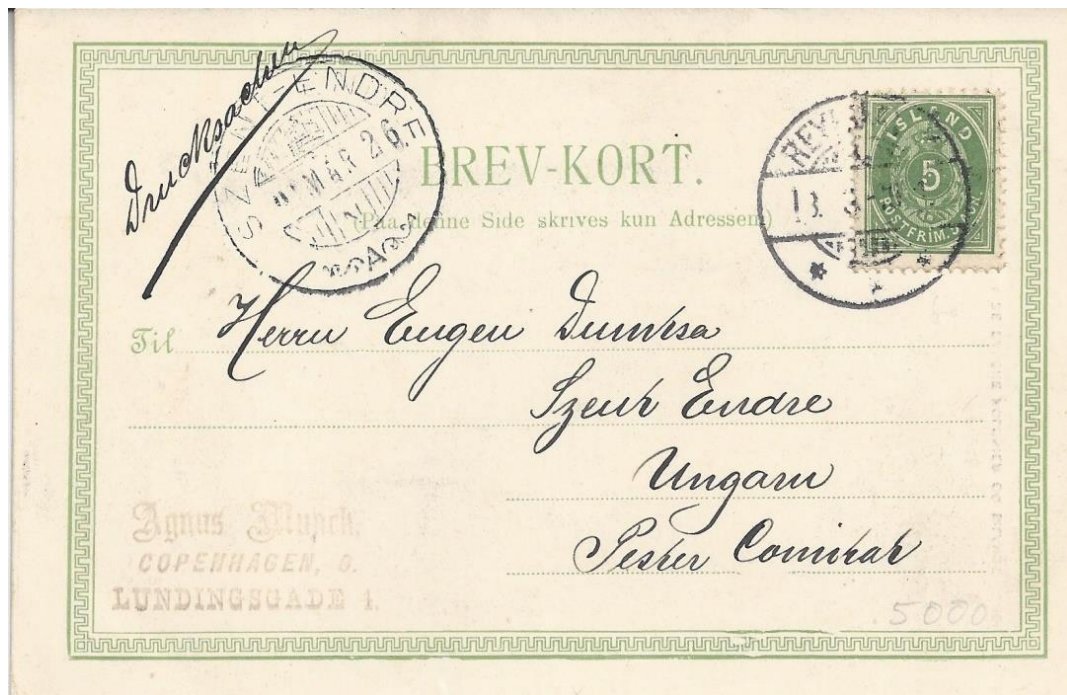 Drucksachen
SZENT-ENDRE
MAR 26
BREV-KORT.
(Paa denne Side skrives kun Adressen)
ISLAND
5
POSTFRIM.
Til Herrn Eugen Dumtsa
Szent Endre
Ungarn
Pester Comitat
Agnus Munch.
COPENHAGEN, O.
LUNDINGSGADE 1.
5000